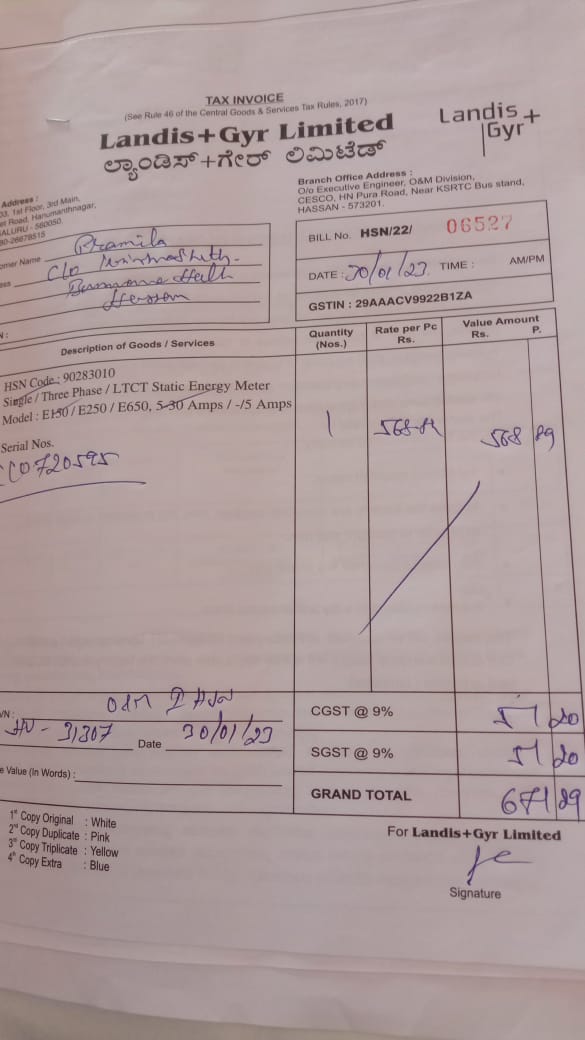 TAX INVOICE
(See Rule 46 of the Central Goods & Services Tax Rules, 2017)
Landis+Gyr Limited
ಲ್ಯಾಂಡಿಸ್+ಗೇರ್ ಲಿಮಿಟೆಡ್
Landis+
Gyr
Address :
03, 1st Floor, 3rd Main,
Road, Hanumanthnagar,
ALURU - 560050.
80-26678515
Branch Office Address :
O/o Executive Engineer, O&M Division,
CESCO, HN Pura Road, Near KSRTC Bus stand,
HASSAN - 573201.
omer Name Pramila
ess C/o
BILL No. HSN/22/ 06527
DATE : 30/01/23 TIME : AM/PM
GSTIN : 29AAACV9922B1ZA
N :
Description of Goods / Services
Quantity (Nos.)
Rate per Pc Rs.
Value Amount Rs. P.
HSN Code : 90283010
Single / Three Phase / LTCT Static Energy Meter
Model : E150 / E250 / E650, 5-30 Amps / -/5 Amps
1 568-89 568 89
Serial Nos.
CC0720595
O&M
VN :
31307 Date 30/01/23
CGST @ 9% 51 20
SGST @ 9% 51 20
e Value (In Words) :
GRAND TOTAL 671 29
1st Copy Original : White
2nd Copy Duplicate : Pink
3rd Copy Triplicate : Yellow
4th Copy Extra : Blue
For Landis+Gyr Limited
Signature